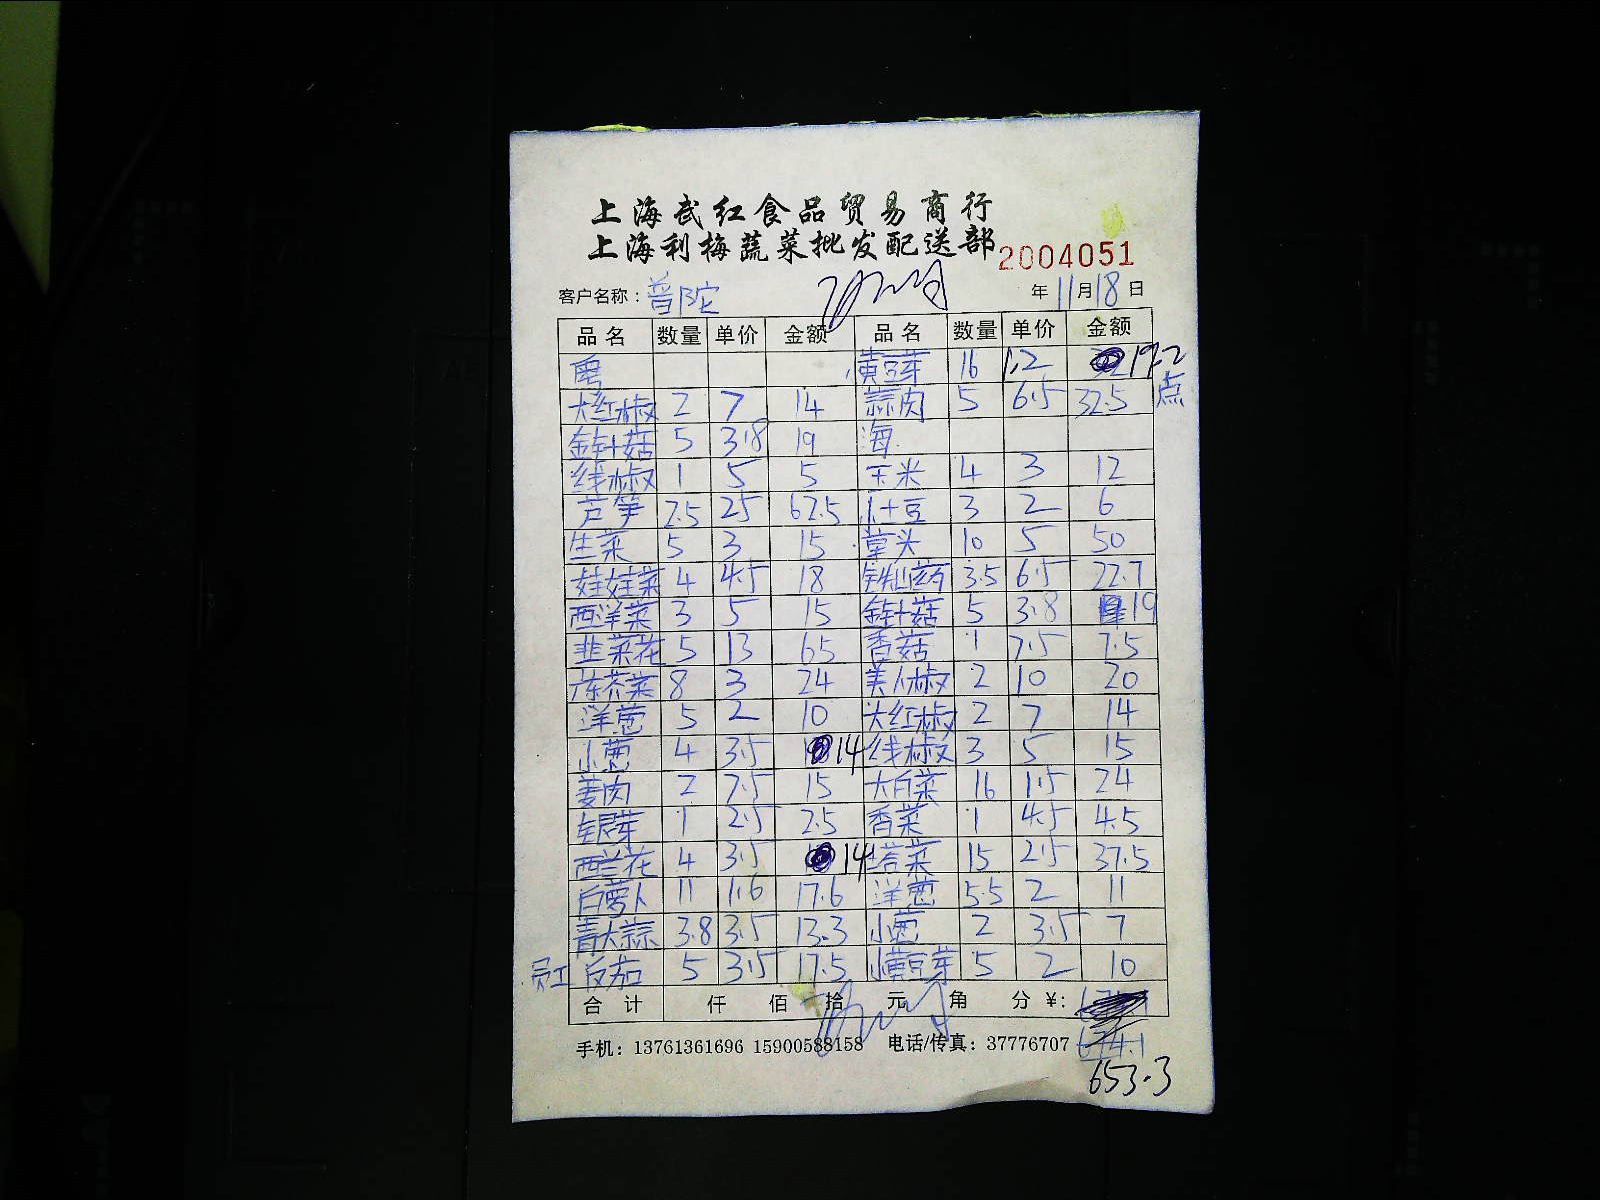 上海武红食品贸易商行
上海利梅蔬菜批发配送部 2004051
客户名称：普陀 年 11 月 18 日
品名 数量 单价 金额 品名 数量 单价 金额
黄豆芽 16 1.2 19.2
大红椒 2 7 14 蒜肉 5 6.5 32.5 点
金针菇 5 3.8 19 海
线椒 1 5 5 玉米 4 3 12
芦笋 2.5 25 62.5 小土豆 3 2 6
生菜 5 3 15 草头 10 5 50
娃娃菜 4 4.5 18 铁山药 3.5 6.5 22.7
西洋菜 3 5 15 金针菇 5 3.8 19
韭菜花 5 13 65 香菇 1 7.5 7.5
芥菜 8 3 24 美人椒 2 10 20
洋葱 5 2 10 大红椒 2 7 14
小葱 4 3.5 14 线椒 3 5 15
姜肉 2 7.5 15 大白菜 16 1.5 24
银芽 1 2.5 2.5 香菜 1 4.5 4.5
西兰花 4 3.5 14 塔菜 15 2.5 37.5
白萝卜 11 1.6 17.6 洋葱 5.5 2 11
青大蒜 3.8 3.5 13.3 小葱 2 3.5 7
员工 反茄 5 3.5 17.5 小黄豆芽 5 2 10
合计 仟 佰 拾 元 角 分 ¥:
手机：13761361696 15900588158 电话/传真：37776707 674.1
653.3